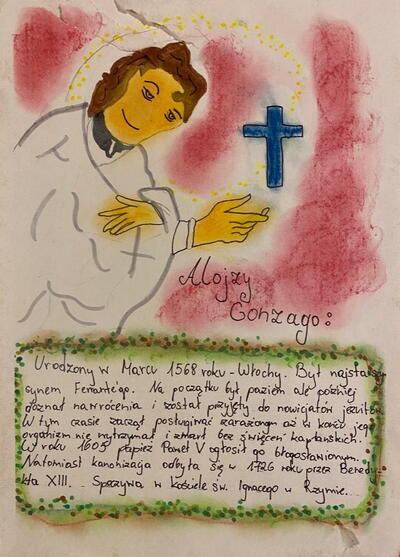 Alojzy
Gonzago:
Urodzony w Marcu 1568 roku - Włochy. Był najstarszym
synem Ferrante'go. Na początku był paziem ale później
doznał nawrócenia i został przyjęty do nowicjatów jezuitów.
W tym czasie zaczął posługiwać zarażonym aż w końcu jego
organizm nie wytrzymał i zmarł bez święceń kapłańskich.
W roku 1605 papież Paweł V ogłosił go błogosławionym...
Natomiast kanonizacja odbyła się w 1726 roku przez Benedy-
kta XIII... Spoczywa w kościele św. Ignacego w Rzymie...